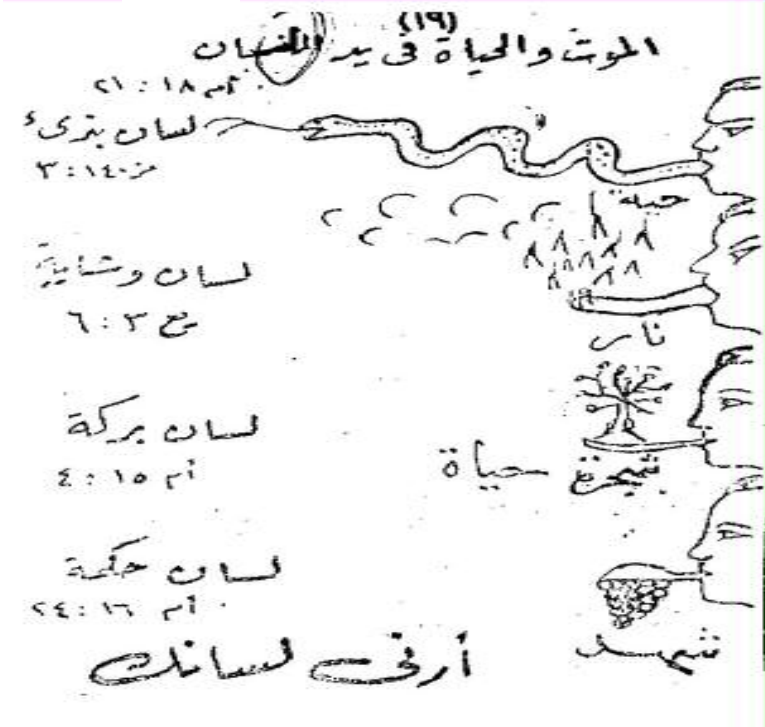 (١٩)
الموت والحياة فى يد اللسان
أم ١٨ : ٢١
لسان بذىء
مز ١٤٠ : ٣
حية
لسان وشاية
يع ٣ : ٦
نار
لسان بركة
أم ١٥ : ٤
شجرة حياة
لسان حكمة
أم ١٦ : ٢٤
شهد
أرنى لسانك